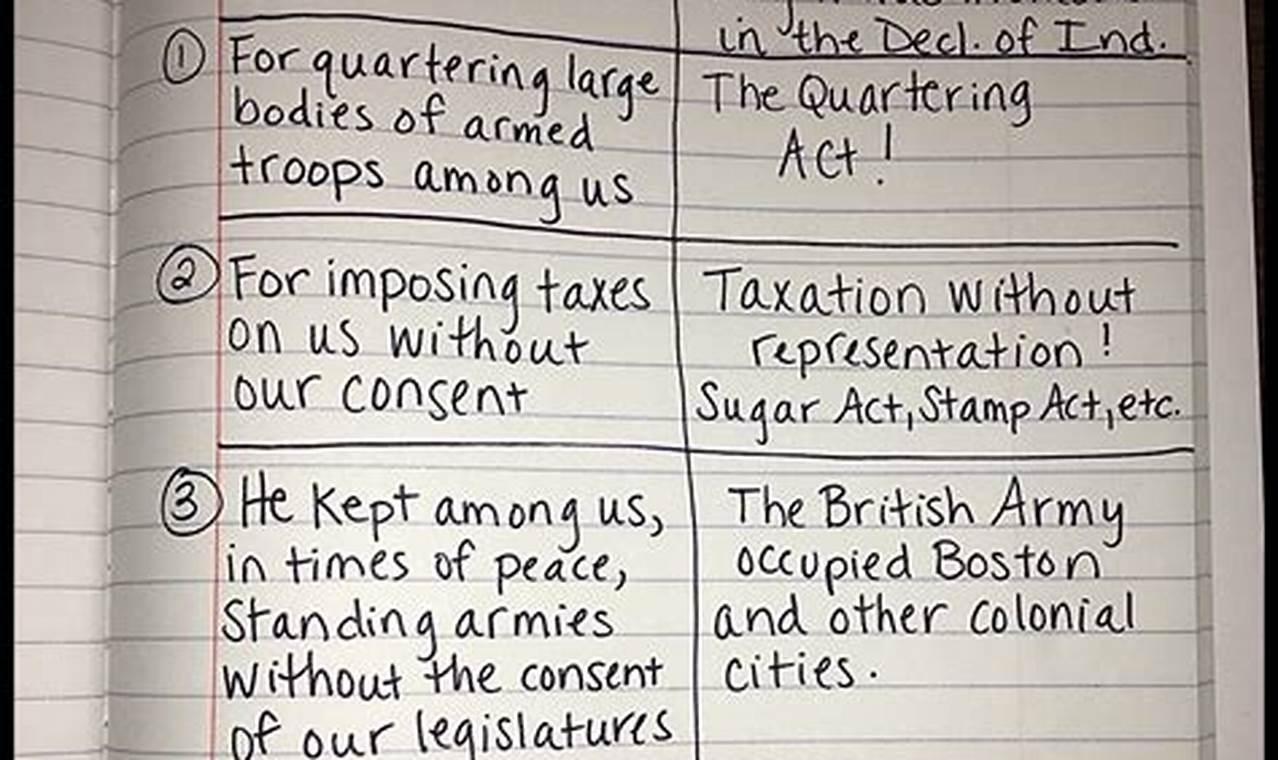 in the Decl. of Ind.
① For quartering large
bodies of armed
troops among us
The Quartering
Act!
② For imposing taxes
on us without
our consent
Taxation without
representation!
Sugar Act, Stamp Act, etc.
③ He kept among us,
in times of peace,
standing armies
without the consent
of our legislatures
The British Army
occupied Boston
and other colonial
cities.